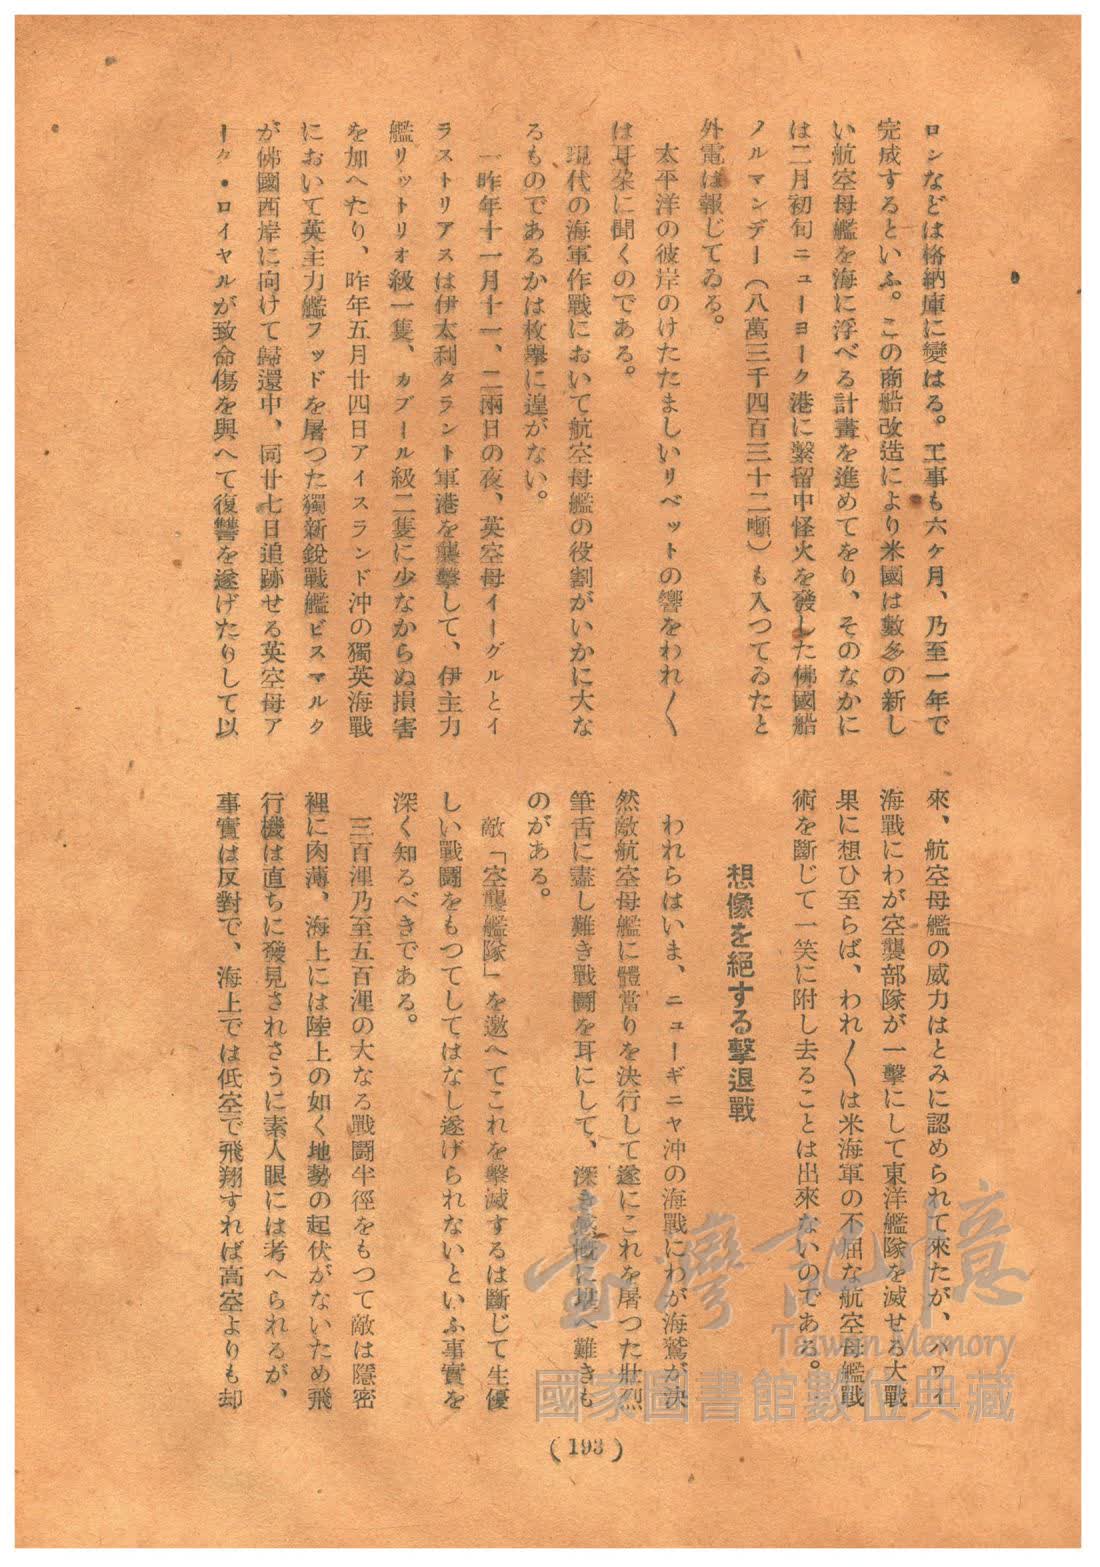 ロンなどは格納庫に變はる。工事も六ケ月、乃至一年で
完成するといふ。この商船改造により米國は數多の新し
い航空母艦を海に浮べる計畫を進めてをり、そのなかに
は二月初旬ニューヨーク港に繫留中怪火を發した佛國船
ノルマンデー（八萬三千四百三十二噸）も入つてゐたと
外電は報じてゐる。
太平洋の彼岸のけたたましいリベットの響をわれ〱
は耳朶に聞くのである。
現代の海軍作戰において航空母艦の役割がいかに大な
るものであるかは枚擧に遑がない。
一昨年十一月十一、二兩日の夜、英空母イーグルとイ
ラストリアスは伊太利タラント軍港を襲擊して、伊主力
艦リットリオ級一隻、カブール級二隻に少なからぬ損害
を加へたり、昨年五月廿四日アイスランド沖の獨英海戰
において英主力艦フッドを屠つた獨新銳戰艦ビスマルク
が佛國西岸に向けて歸還中、同廿七日追跡せる英空母ア
ーク・ロイヤルが致命傷を與へて復讐を遂げたりして以
來、航空母艦の威力はとみに認められて來たが、ハワイ
海戰にわが空襲部隊が一擊にして東洋艦隊を滅せる大戰
果に想ひ至らば、われ〱は米海軍の不屈な航空母艦戰
術を斷じて一笑に附し去ることは出來ないのである。
想像を絕する擊退戰
われらはいま、ニューギニヤ沖の海戰にわが海鷲が決
然敵航空母艦に體當りを決行して遂にこれを屠つた壯烈
筆舌に盡し難き戰鬪を耳にして、深き感慨に堪へ難きも
のがある。
敵「空襲艦隊」を邀へてこれを擊滅するは斷じて生優
しい戰鬪をもつてしてはなし遂げられないといふ事實を
深く知るべきである。
三百浬乃至五百浬の大なる戰鬪半徑をもつて敵は隱密
裡に肉薄、海上には陸上の如く地勢の起伏がないため飛
行機は直ちに發見されさうに素人眼には考へられるが、
事實は反對で、海上では低空で飛翔すれば高空よりも却
（193）
臺灣記憶
Taiwan Memory
國家圖書館數位典藏